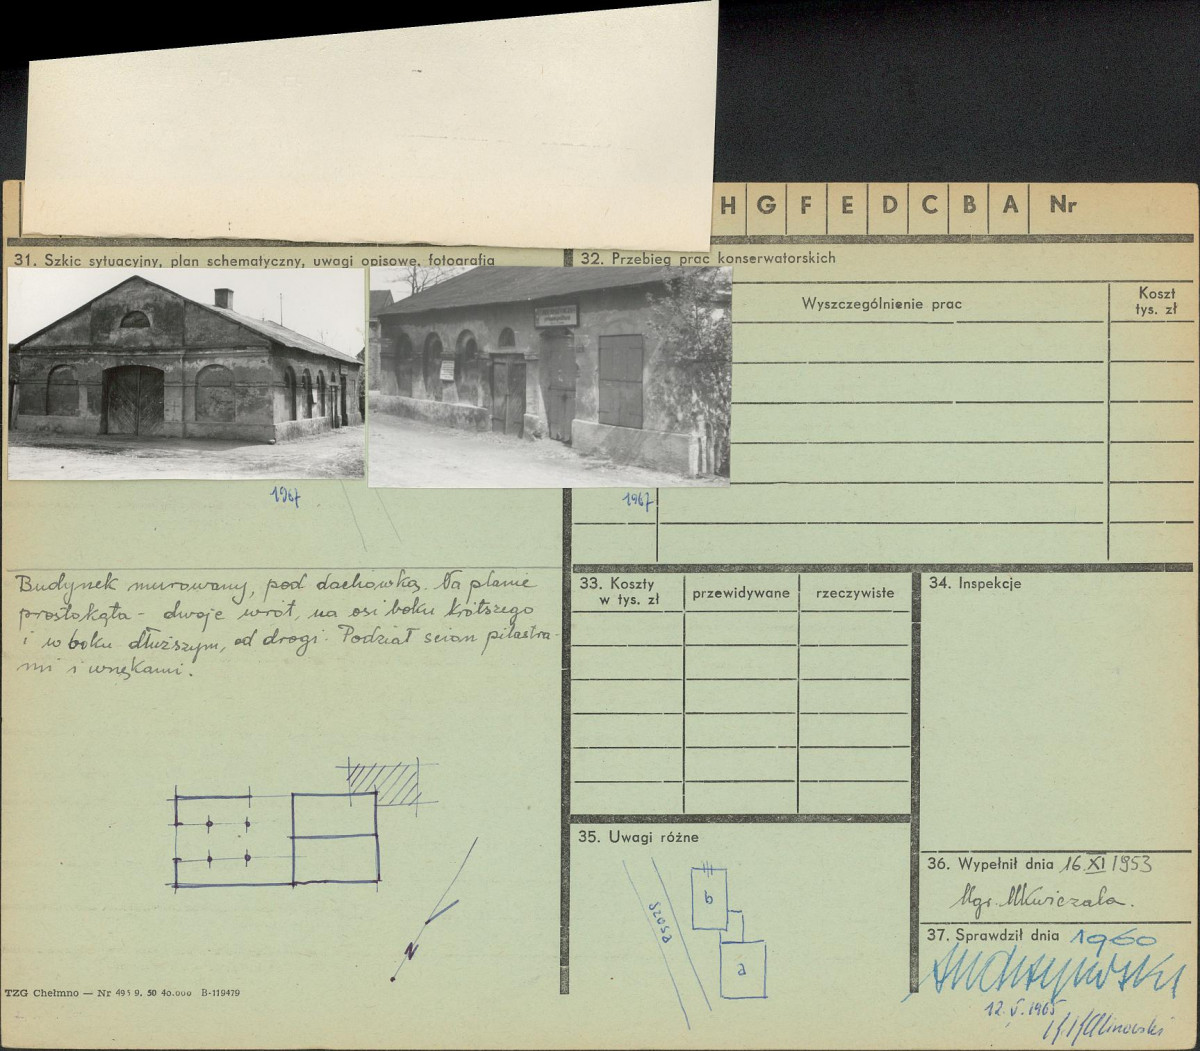 H G F E D C B A Nr
31. Szkic sytuacyjny, plan schematyczny, uwagi opisowe, fotografia
32. Przebieg prac konserwatorskich
Wyszczególnienie prac
Koszt
tys. zł
1967
1967
Budynek murowany, pod dachówką. Na planie
prostokąta - dwoje wrót, na osi boku krótszego
i w boku dłuższym, od drogi. Podział ścian pilastra-
mi i wnękami.
N
TZG Chełmno — Nr 495 9. 50 40.000 B-119479
33. Koszty
w tys. zł
przewidywane
rzeczywiste
34. Inspekcje
35. Uwagi różne
Szosa
b
a
36. Wypełnił dnia 16 XI 1953
Mgr. MKwiczala.
37. Sprawdził dnia 1960
12. V. 1965